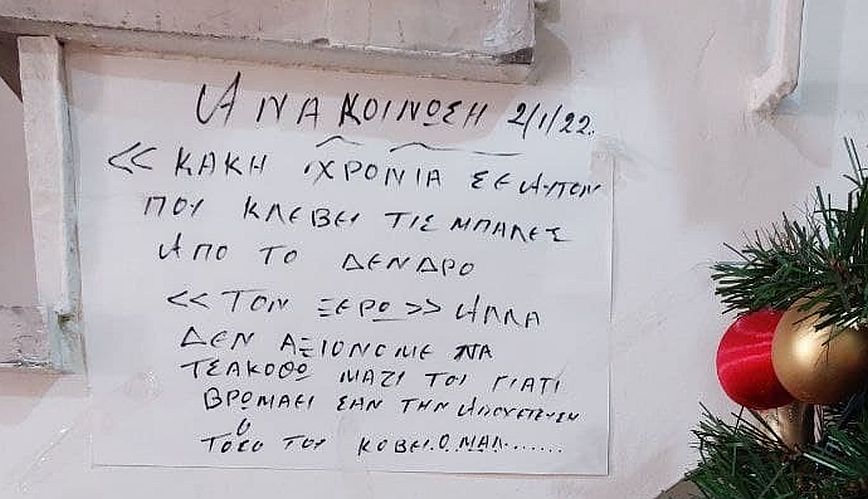 ΑΝΑΚΟΙΝΩΣΗ 2/1/22.
<< ΚΑΚΗ ΧΡΟΝΙΑ ΣΕ ΑΥΤΟΝ
ΠΟΥ ΚΛΕΒΕΙ ΤΙΣ ΜΠΑΛΕΣ
ΑΠΟ ΤΟ ΔΕΝΔΡΟ
<< ΤΟΝ ΞΕΡΩ >> ΑΛΛΑ
ΔΕΝ ΑΞΙΟΝΟΜΕ ΝΑ
ΤΣΑΚΟΘΩ ΜΑΖΙ ΤΟΥ ΓΙΑΤΙ
ΒΡΩΜΑΕΙ ΣΑΝ ΤΗΝ ΑΠΟΧΕΤΕΥΣΗ
ΤΟΣΟ ΤΟΥ ΚΟΒΕΙ.Ο.ΜΑΛ.......